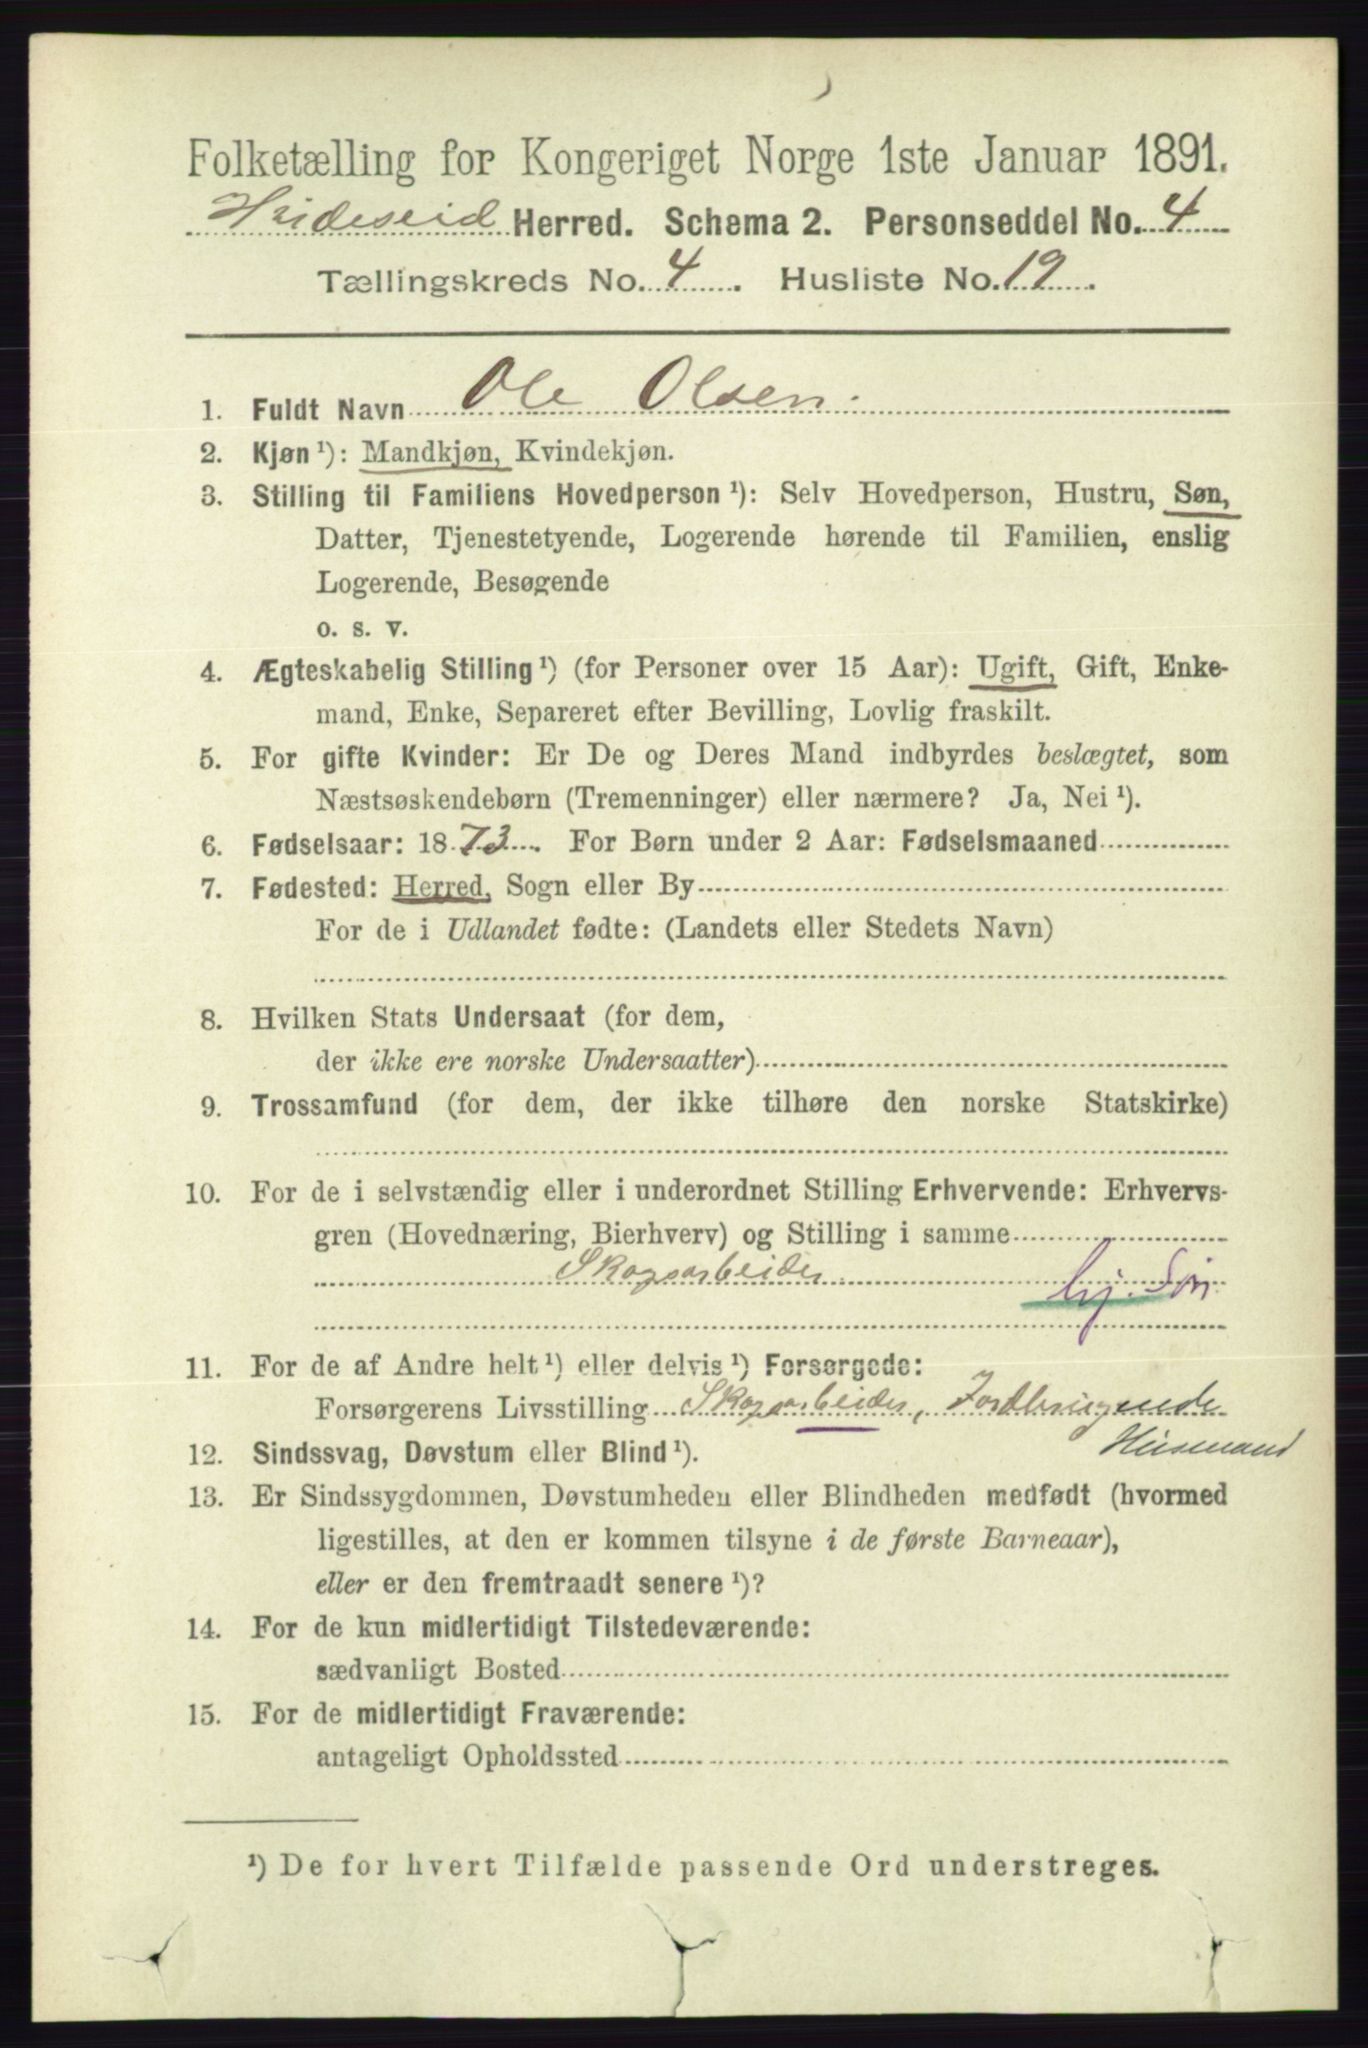 Folketælling for Kongeriget Norge 1ste Januar 1891.
Hvideseid Herred. Schema 2. Personseddel No. 4
Tællingskreds No. 4. Husliste No. 19.
1. Fuldt Navn Ole Olsen.
2. Kjøn ¹): Mandkjøn, Kvindekjøn.
3. Stilling til Familiens Hovedperson ¹): Selv Hovedperson, Hustru, Søn,
Datter, Tjenestetyende, Logerende hørende til Familien, enslig
Logerende, Besøgende
o. s. v.
4. Ægteskabelig Stilling ¹) (for Personer over 15 Aar): Ugift, Gift, Enke-
mand, Enke, Separeret efter Bevilling, Lovlig fraskilt.
5. For gifte Kvinder: Er De og Deres Mand indbyrdes beslægtet, som
Næstsøskendebørn (Tremenninger) eller nærmere? Ja, Nei ¹).
6. Fødselsaar: 1873. For Børn under 2 Aar: Fødselsmaaned
7. Fødested: Herred, Sogn eller By
For de i Udlandet fødte: (Landets eller Stedets Navn)
8. Hvilken Stats Undersaat (for dem,
der ikke ere norske Undersaatter)
9. Trossamfund (for dem, der ikke tilhøre den norske Statskirke)
10. For de i selvstændig eller i underordnet Stilling Erhvervende: Erhvervs-
gren (Hovednæring, Bierhverv) og Stilling i samme
Skogsarbeider. hj. Søn
11. For de af Andre helt ¹) eller delvis ¹) Forsørgede:
Forsørgerens Livsstilling Skogsarbeider, Jordbrugende
Husmand
12. Sindssvag, Døvstum eller Blind ¹).
13. Er Sindssygdommen, Døvstumheden eller Blindheden medfødt (hvormed
ligestilles, at den er kommen tilsyne i de første Barneaar),
eller er den fremtraadt senere ¹)?
14. For de kun midlertidigt Tilstedeværende:
sædvanligt Bosted
15. For de midlertidigt Fraværende:
antageligt Opholdssted
¹) De for hvert Tilfælde passende Ord understreges.